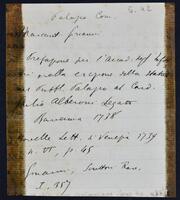 Palazzo Com.
Prefazione per l'Accad. degl'Infor
mi nella erezione della Statua
nel Pubbl. Palagio al Card.
Giulio Alberoni Legato
Ravenna 1738
Novelle Lett. di Venezia 1739
n. VI, p. 45
Ginanni, Scrittori Rav.
I, 357